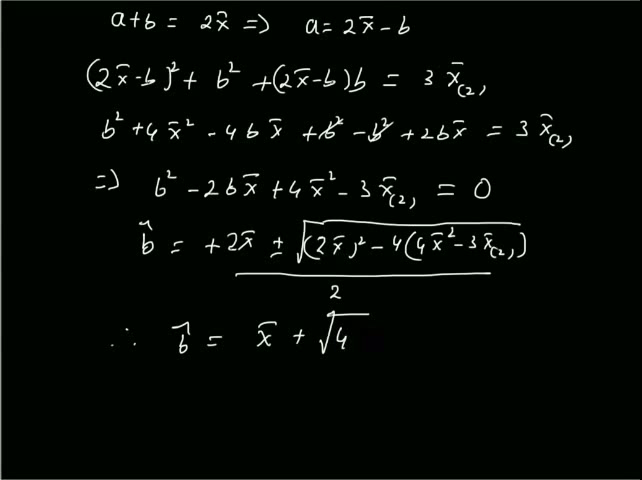 a+b = 2x̄ => a = 2x̄ - b
(2x̄-b)² + b² + (2x̄-b)b = 3 x̄₍₂₎
b² + 4x̄² - 4bx̄ + b² - b² + 2bx̄ = 3 x̄₍₂₎
=> b² - 2bx̄ + 4x̄² - 3x̄₍₂₎ = 0
b̂ = +2x̄ ± √((2x̄)² - 4(4x̄² - 3x̄₍₂₎))
2
∴ b̂ = x̄ + √4